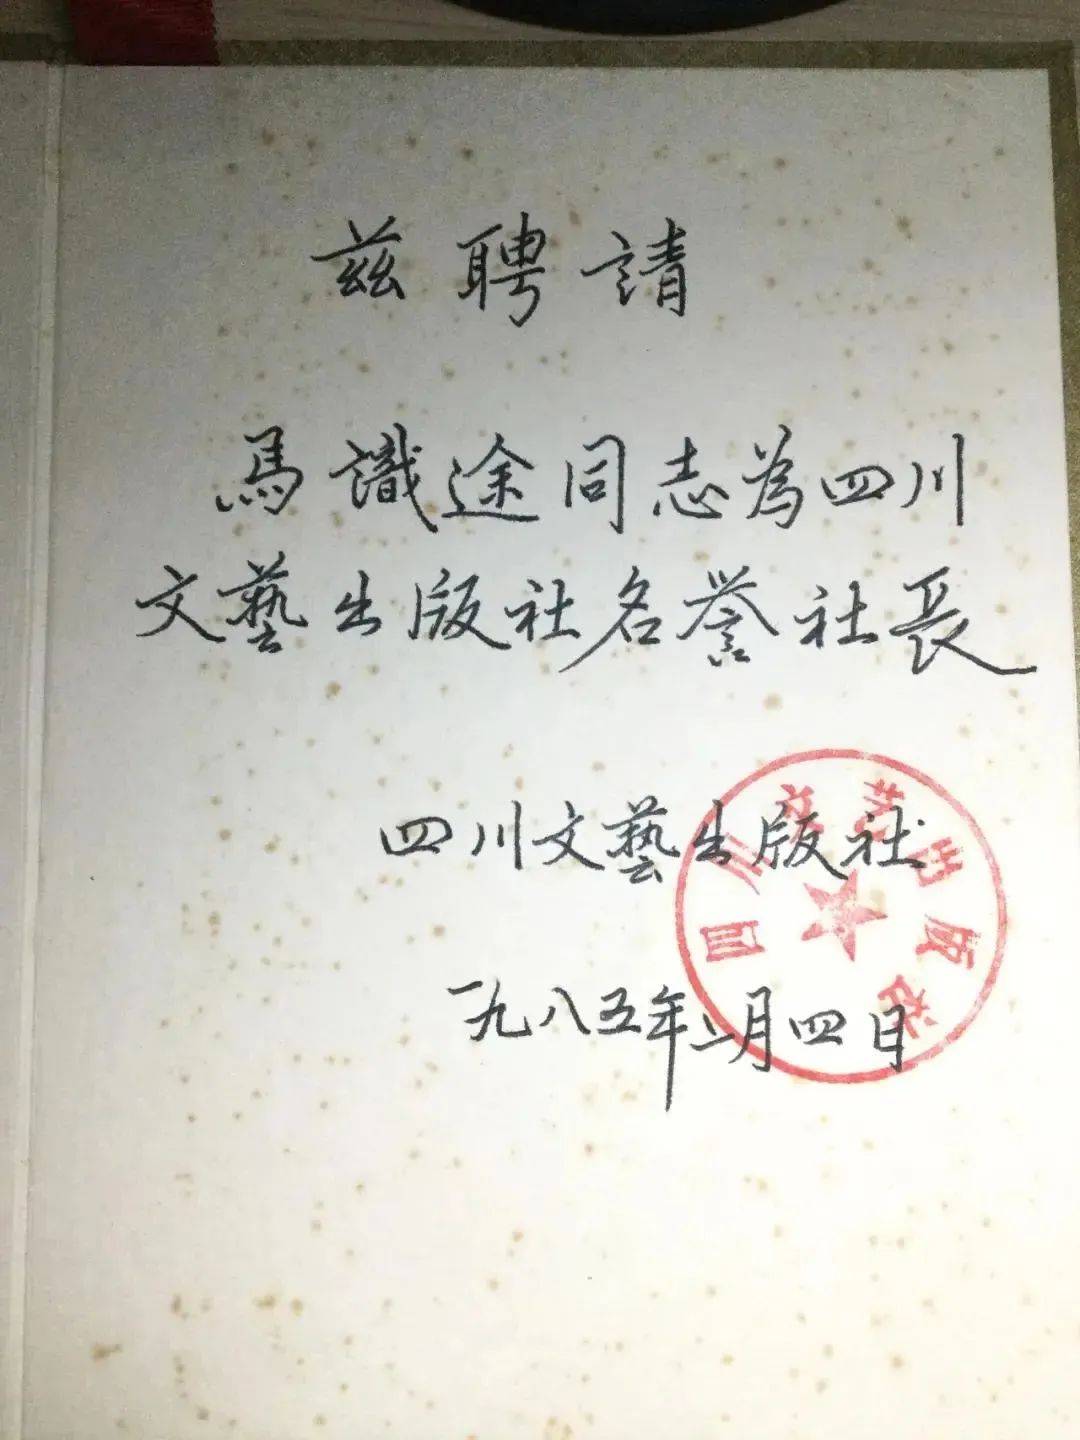 兹聘請
馬識途同志為四川
文藝出版社名誉社長
四川文藝出版社
一九八五年二月四日
四川文艺出版社